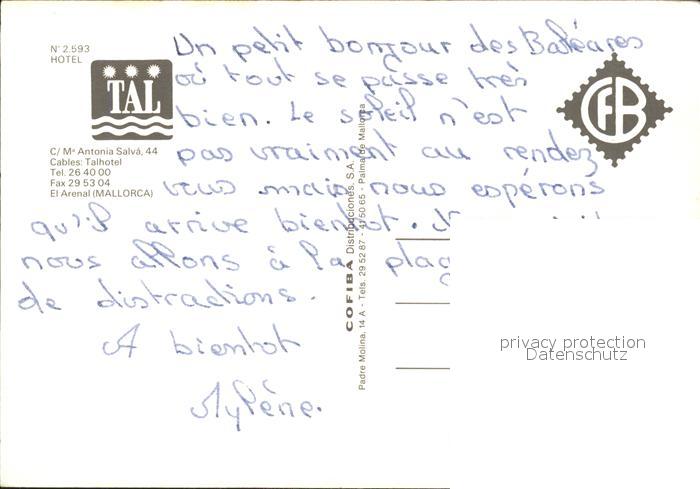 N° 2.593
HOTEL
TAL
C/ Mª Antonia Salvá, 44
Cables: Talhotel
Tel. 26 40 00
Fax 29 53 04
El Arenal (MALLORCA)
Un petit bonjour des Baléares
où tout se passe très
bien. Le soleil n'est
pas vraiment au rendez
vous mais nous espérons
qu'il arrive bientot.
nous allons à la plag
de distractions.
A bientot
Mylène.
COFIBA Distribuciones, S.A.
Padre Molina, 14 A - Tels. 29 52 87 - 41 50 65 - Palma de Mallorca
CFB
privacy protection
Datenschutz